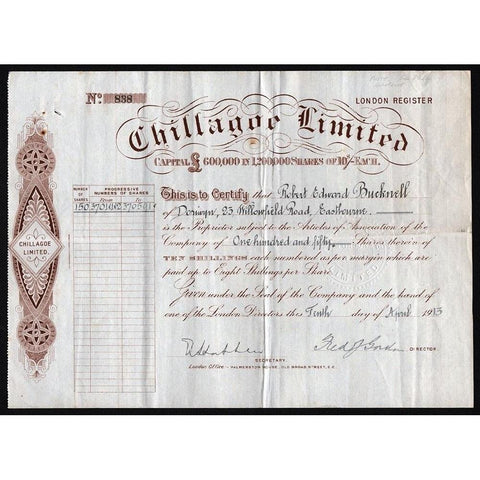 No. 838
LONDON REGISTER
Chillagoe Limited
CAPITAL £600,000 IN 1,200,000 SHARES OF 10/- EACH.
NUMBER OF SHARES
PROGRESSIVE NUMBERS OF SHARES
From To
150
This is to Certify that Robert Edward Bucknell
of 23 Willowfield Road, Eastbourne.
is the Proprietor subject to the Articles of Association of the
Company of One hundred and fifty Shares therein of
TEN SHILLINGS each numbered as per margin which are
paid up to Eight Shillings per Share.
Given under the Seal of the Company and the hand of
one of the London Directors this Tenth day of April 1913
CHILLAGOE LIMITED.
DIRECTOR.
SECRETARY
London Office - PALMERSTON HOUSE, OLD BROAD STREET, E.C.